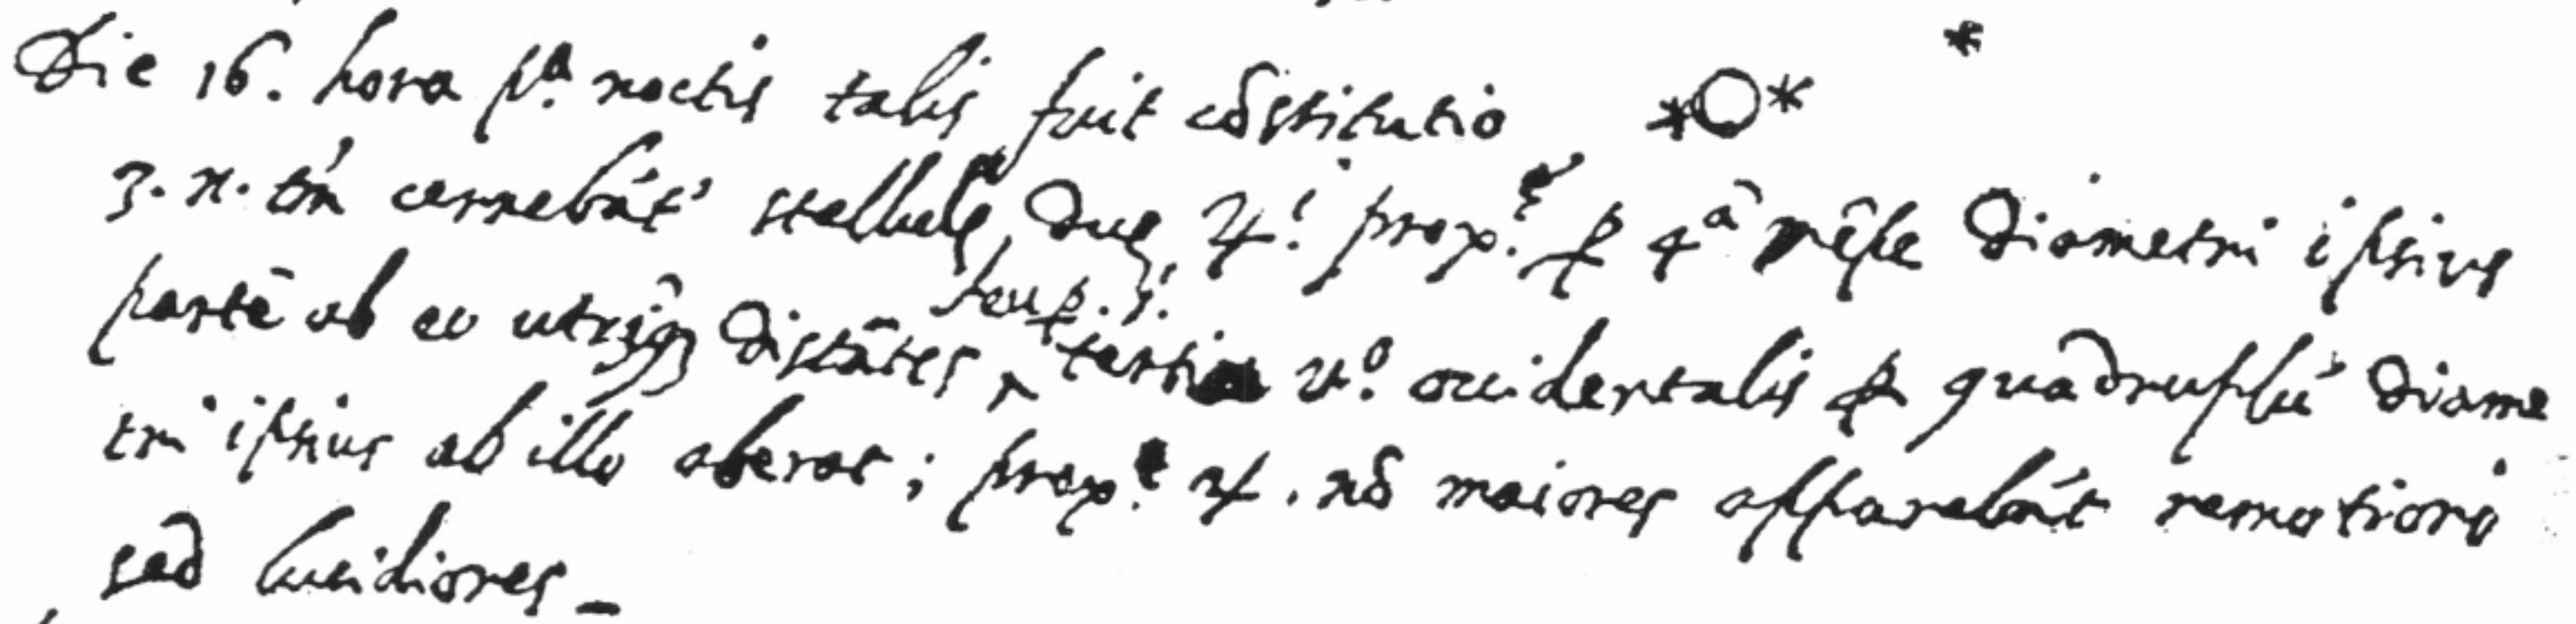 Die 16. hora pᵃ. noctis talis fuit cõstitutio *O* *
3. n. tm̃ cernebãt' stellulę, duę ♃.ⁱ prop.ᵉ ꝑ 4ᵃ̃ ipsius diametri
partẽ ab eo utrĩqꝫ distãtes, tertia v.º occidentalis ꝑ quadruplũ diame
tri ipsius ab illo aberat; prop.ᵉ ♃. nõ maiores apparebãt remotiori
sed lucidiores –